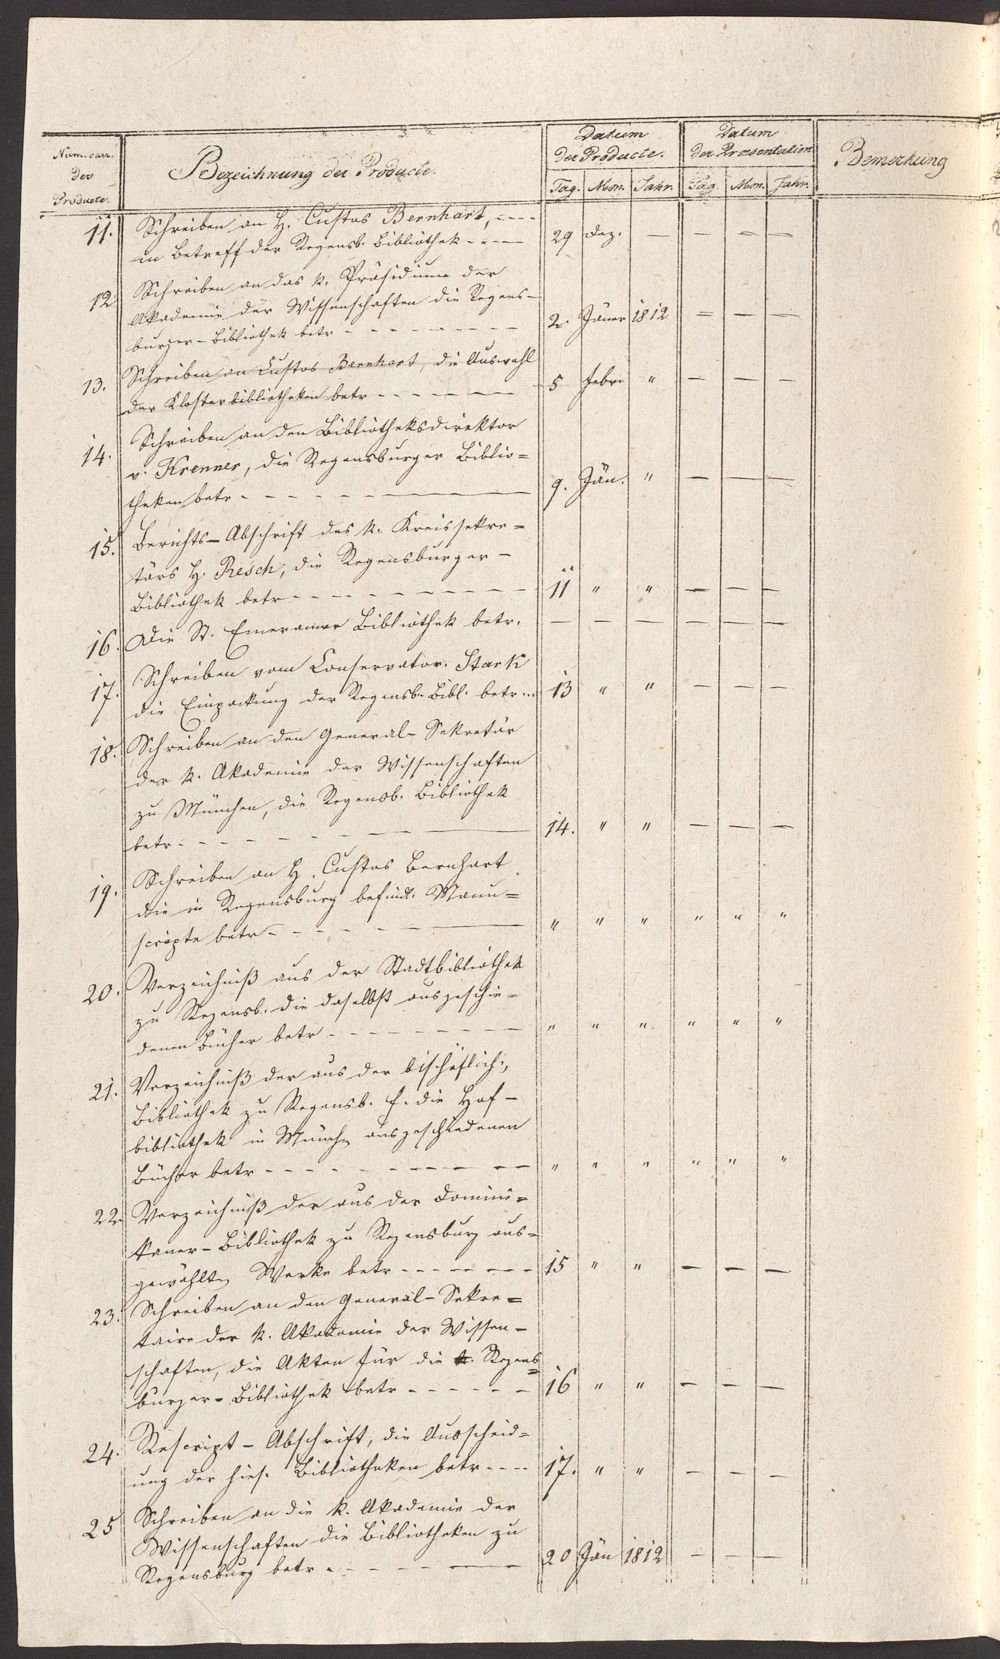 Num. cur.
der
Producte.
Bezeichnung der Producte.
Datum
der Producte.
Datum
der Praesentation
Bemerkung
Tag. Mon. Jahr. Tag. Mon. Jahr.
11. Schreiben an H. Custos Bernhart, - - - -
in Betreff der Regensb. Bibliothek - - - - 29 Dez. — — — —
12 Schreiben an das k. Präsidium der
Akademie der Wissenschaften die Regens-
burger-Bibliothek betr - - - - - - - 2. Jäner 1812 — — —
13. Schreiben an Custos Bernhart, die Auswahl
der Klosterbibliotheken betr - - - - - - 5 Febr. " — — —
14. Schreiben an den Bibliotheksdirektor
v. Krenner, die Regensburger Biblio=
theken betr - - - - - - 9. Jän. " — — —
15. Berichts-Abschrift des k. Kreissekre=
tärs H. Resch, die Regensburger-
Bibliothek betr - - - - - - - - - 11 " " — — —
16. Die St. Emeramer Bibliothek betr. — — — — — —
17. Schreiben vom Conservator. Stark
die Einpackung der Regensb. Bibl. betr... 13 " " — — —
18. Schreiben an den General-Sekretär
der k. Akademie der Wissenschaften
zu München, die Regensb. Bibliothek
betr - - - - - - - 14. " " — — —
19. Schreiben an H. Custos Bernhart
die in Regensburg befindl. Manu=
scripte betr - - - - - - " " " " " "
20. Verzeichniß aus der Stadtbibliothek
zu Regensb. die daselbst ausgeschie-
denen Bücher betr - - - - - - - - " " " " " "
21. Verzeichniß der aus der bischöflich.,
Bibliothek zu Regensb. f. die Hof-
bibliothek in Münch. ausgeschiedenen
Bücher betr - - - - - - - - - " " " " " "
22. Verzeichniß der aus der Domini=
kaner-Bibliothek zu Regensburg aus=
gewählten Werke betr - - - - - - - 15 " " — — —
23. Schreiben an den General-Sekre=
taire der k. Akademie der Wissen-
schaften, die Akten für die Regens
burger-Bibliothek betr - - - - - - 16 " " — — —
24. Rescript - Abschrift, die Ausscheid=
ung der hies. Bibliotheken betr - - - - 17. " " — — —
25 Schreiben an die k. Akademie der
Wissenschaften die Bibliotheken zu
Regensburg betr - - - - - - 20 Jän 1812 — — —